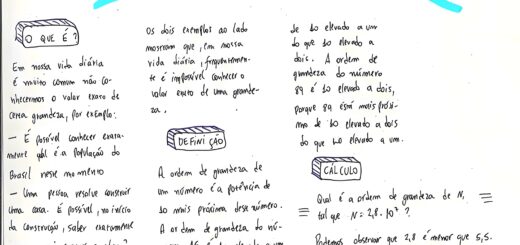 O QUE É?
Em nossa vida diária
é muito comum não co-
nhecermos o valor exato de
certa grandeza, por exemplo:
— É possível conhecer exata-
mente qal é a população do
Brasil nesse momento
— Uma pessoa resolve construir
uma casa. É possível, no início
da construção, saber exatamente
Os dois exemplos ao lado
mostram que, em nossa
vida diária, frequentemen-
te é impossível conhecer o
valor exato de uma grande-
za.
DEFINIÇÃO
A ordem de grandeza de
um número é a potência de
10 mais próxima desse número.
A ordem de grandeza do nú-
de 10 elevado a um
do que 10 elevado a
dois. A ordem de
grandeza do número
89 é 10 elevado a dois,
porque 89 está mais próxi-
mo de 10 elevado a dois
do que 10 elevado a um.
CÁLCULO
Qual é a ordem de grandeza de N,
tal que N = 2,8 . 10⁷ ?
Podemos observar que 2,8 é menor que 5,5.